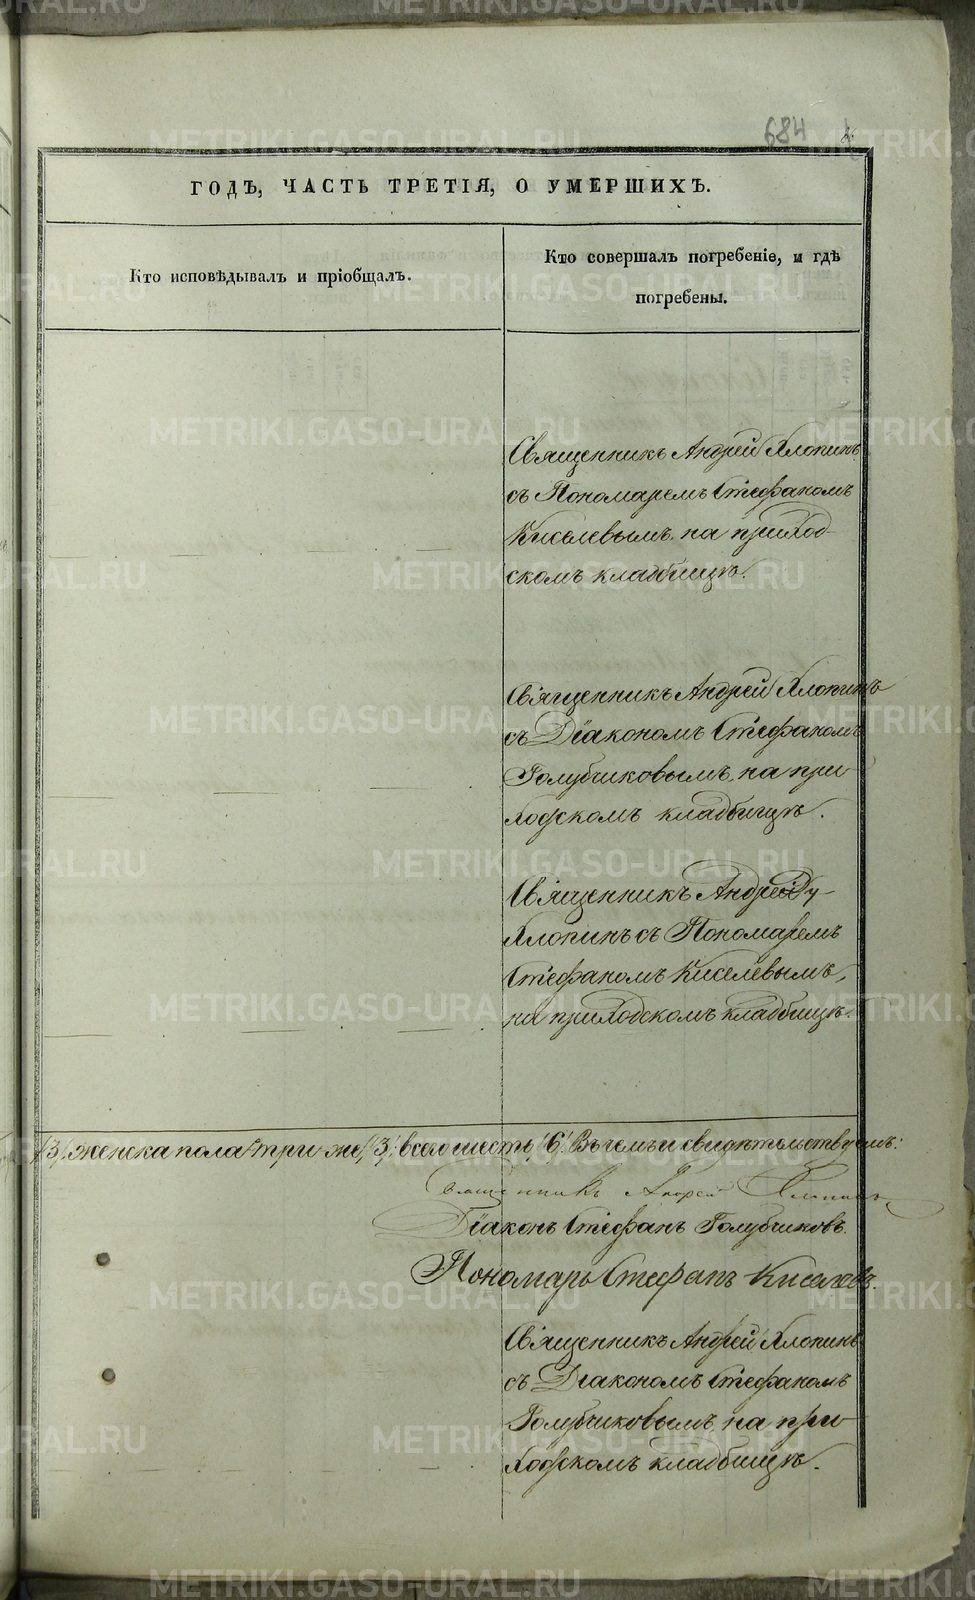 684
ГОДЪ, ЧАСТЬ ТРЕТІЯ, О УМЕРШИХЪ.
Кто исповѣдывалъ и пріобщалъ.
Кто совершалъ погребеніе, и гдѣ
погребены.
Священникъ Андрей Хлопинъ
съ Пономаремъ Стефаномъ
Киселевымъ, на приход-
скомъ кладбищѣ.
Священникъ Андрей Хлопинъ
съ Діакономъ Стефаномъ
Голубчиковымъ, на при-
ходскомъ кладбищѣ.
Священникъ Андрей
Хлопинъ съ Пономаремъ
Стефаномъ Киселевымъ,
на приходскомъ кладбищѣ.
/3/ женска пола три же /3/ всего шесть /6/. Въ чемъ и свидѣтельствуемъ:
Священникъ Андрей Хлопинъ
Діаконъ Стефанъ Голубчиковъ.
Пономарь Стефанъ Киселевъ.
Священникъ Андрей Хлопинъ
съ Діакономъ Стефаномъ
Голубчиковымъ, на при-
ходскомъ кладбищѣ.
METRIKI.GASO-URAL.RU